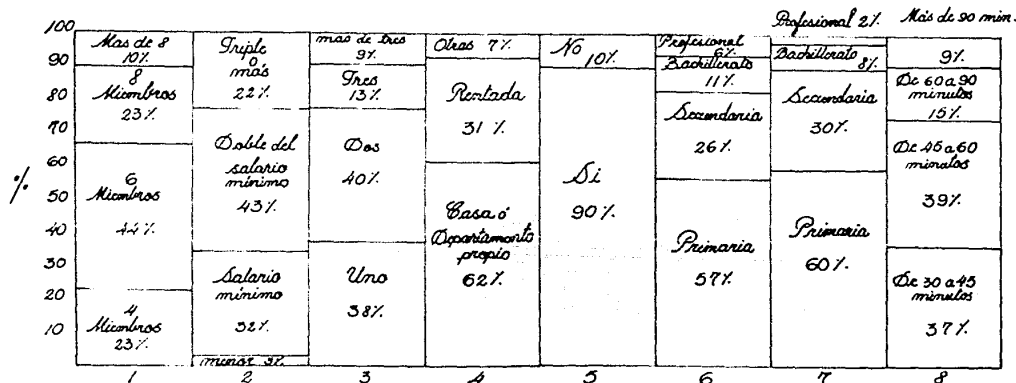 Profesional 2%. Más de 90 min.
100
90
80
70
60
50
40
30
20
10
%
Mas de 8
10%.
8
Miembros
23%.
6
Miembros
44%
4
Miembros
23%.
1
Triple
o
más
22%.
Doble del
salario
mínimo
43%.
Salario
mínimo
32%.
menor 3%.
2
mas de tres
9%.
Tres
13%.
Dos
40%.
Uno
38%.
3
Otras 7%.
Rentada
31%.
Casa ó
Departamento
propio
62%.
4
No
10%.
Si
90%.
5
Profesional
6%.
Bachillerato
11%.
Secundaria
26%.
Primaria
57%.
6
Bachillerato
8%.
Secundaria
30%.
Primaria
60%.
7
9%.
De 60 a 90
minutos
15%.
De 45 a 60
minutos
39%.
De 30 a 45
minutos
37%.
8